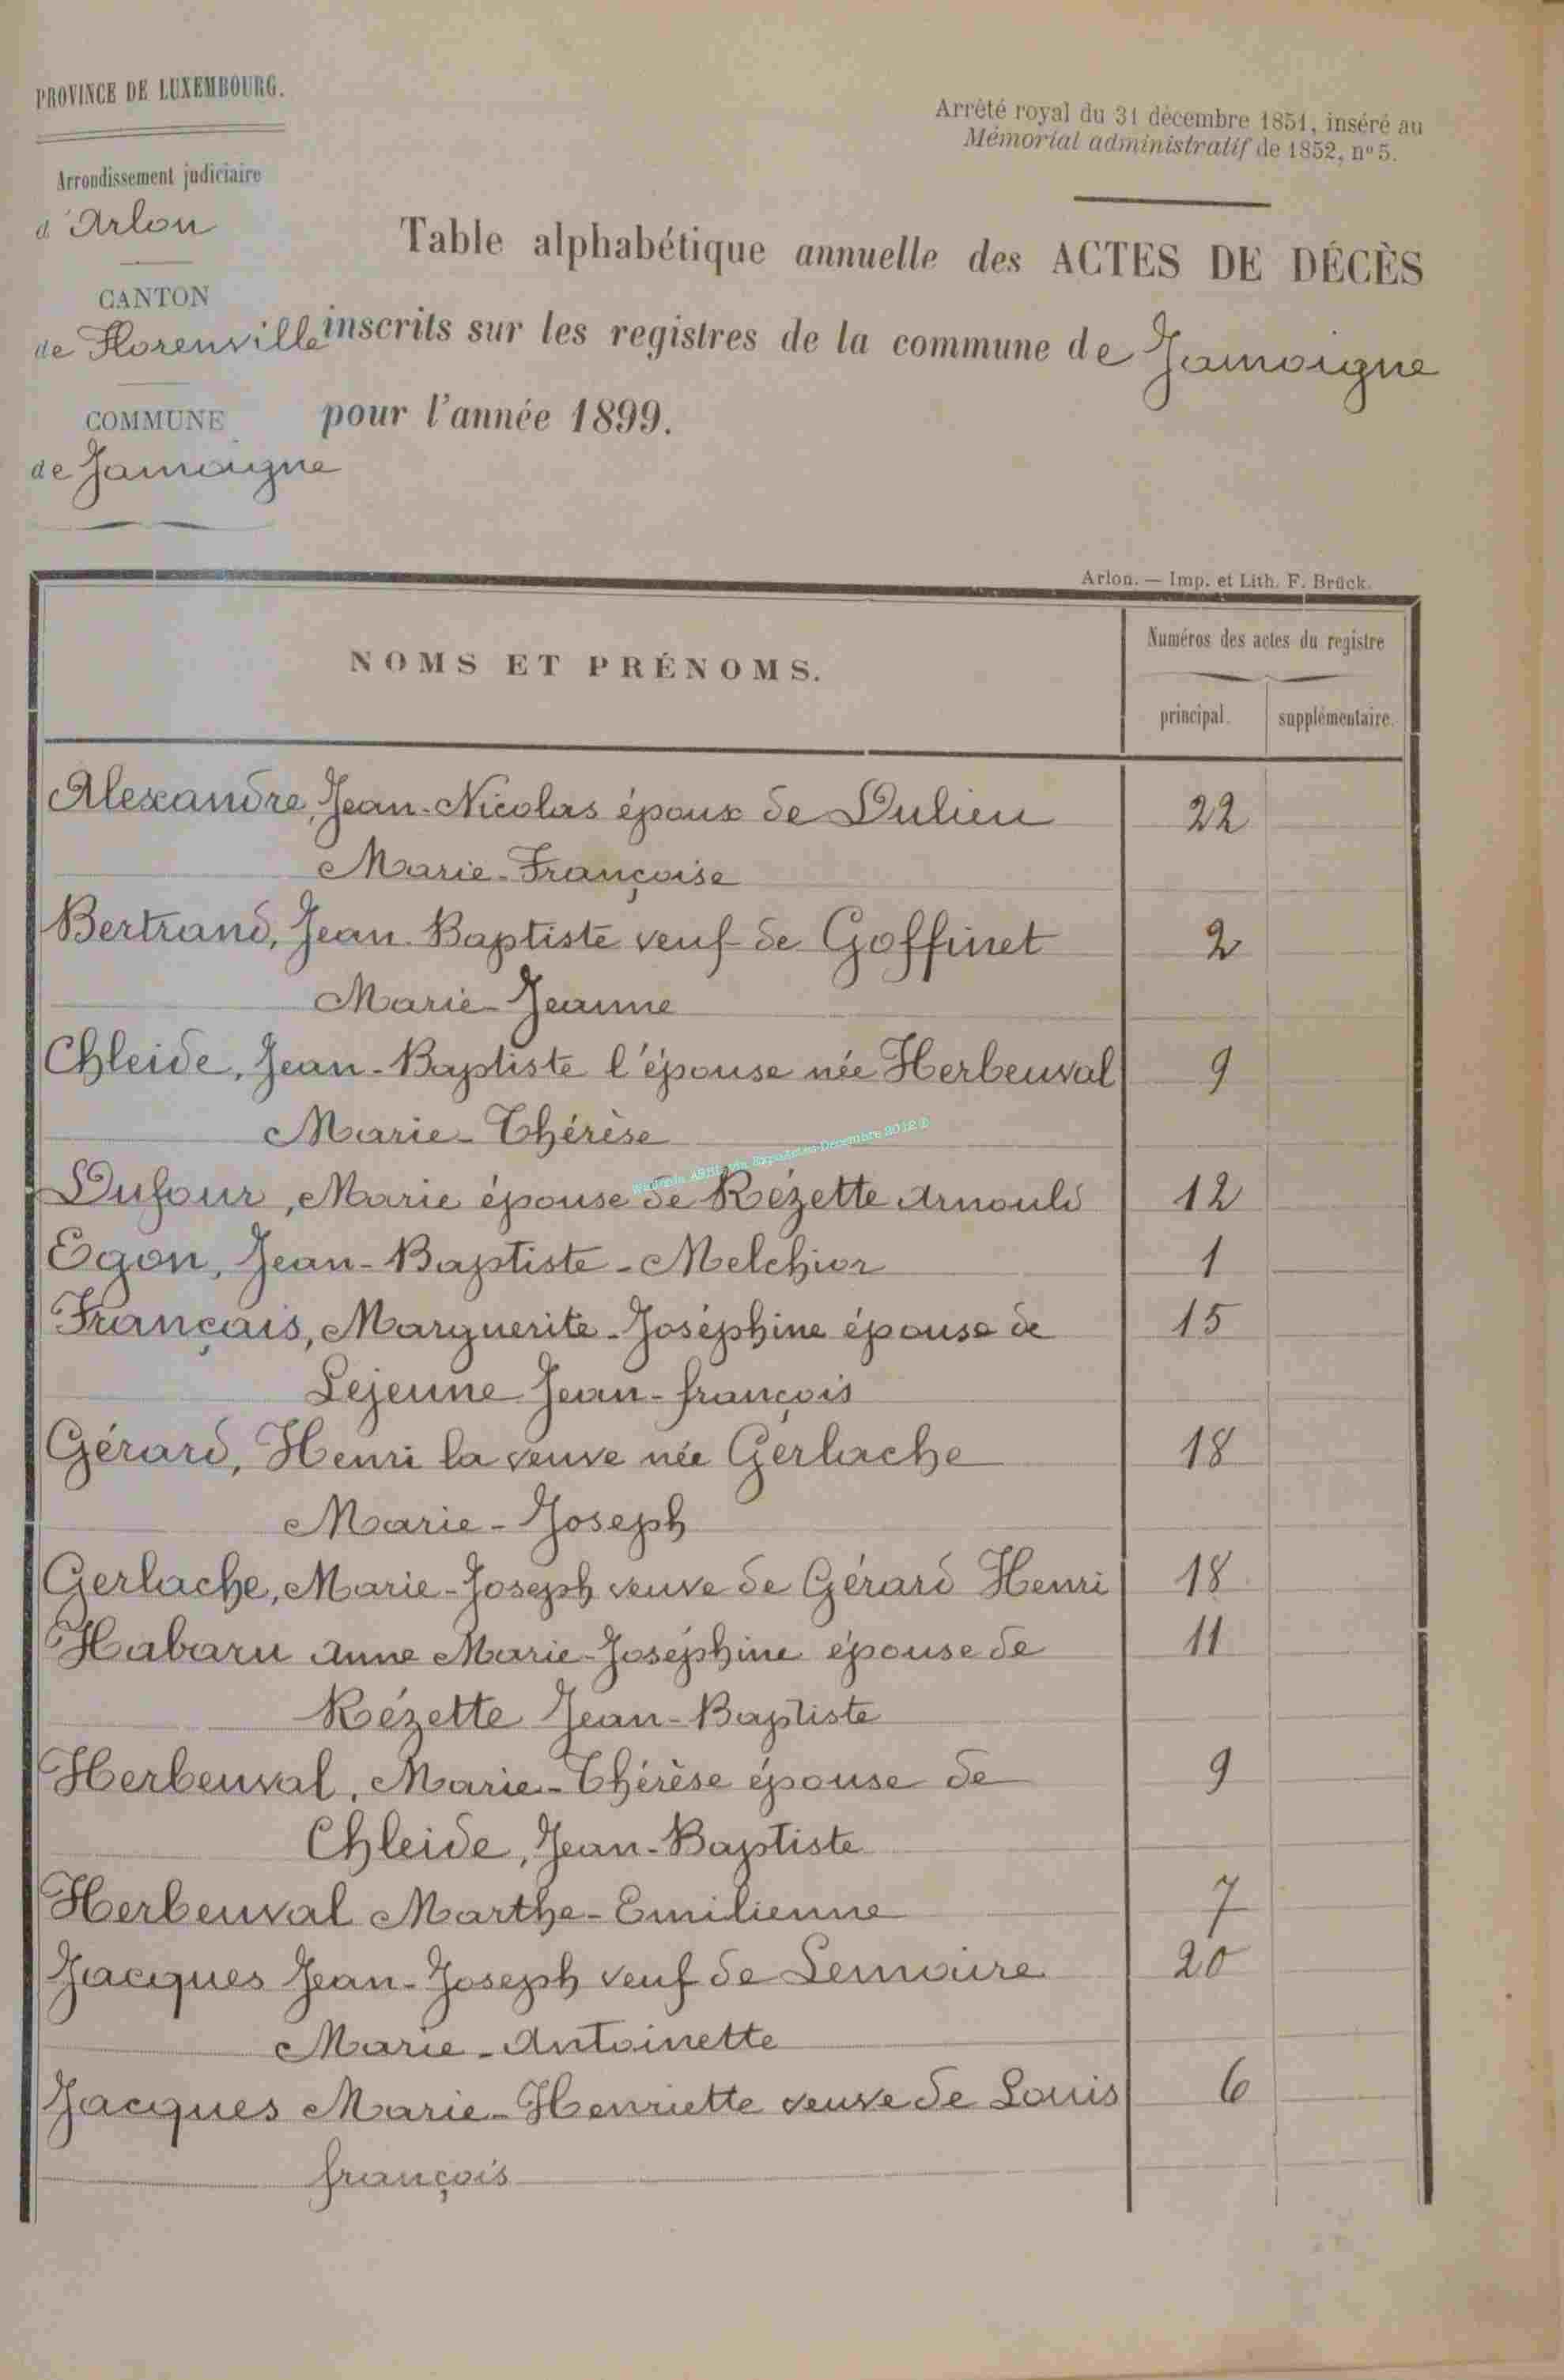 PROVINCE DE LUXEMBOURG.
Arrondissement judiciaire
d'Arlon
CANTON
de Florenville
COMMUNE
de Jamoigne
Arrêté royal du 31 décembre 1851, inséré au
Mémorial administratif de 1852, nº 5.
Table alphabétique annuelle des ACTES DE DÉCÈS
inscrits sur les registres de la commune de Jamoigne
pour l'année 1899.
Arlon. — Imp. et Lith. F. Brück.
NOMS ET PRÉNOMS.
Numéros des actes du registre
principal. supplémentaire.
Alexandre, Jean-Nicolas époux de Dulieu 22
Marie-Françoise
Bertrand, Jean-Baptiste veuf de Goffinet 2
Marie-Jeanne
Chleide, Jean-Baptiste l'épouse née Herbeuval 9
Marie-Thérèse
Dufour, Marie épouse de Rézette Arnould 12
Egon, Jean-Baptiste-Melchior 1
Français, Marguerite-Joséphine épouse de 15
Lejeune Jean-françois
Gérard, Henri la veuve née Gerlache 18
Marie-Joseph
Gerlache, Marie-Joseph veuve de Gérard Henri 18
Habaru Anne Marie-Joséphine épouse de 11
Rézette Jean-Baptiste
Herbeuval, Marie-Thérèse épouse de 9
Chleide, Jean-Baptiste
Herbeuval Marthe-Emilienne 7
Jacques Jean-Joseph veuf de Lemaire 20
Marie-Antoinette
Jacques Marie-Henriette veuve de Louis 6
françois